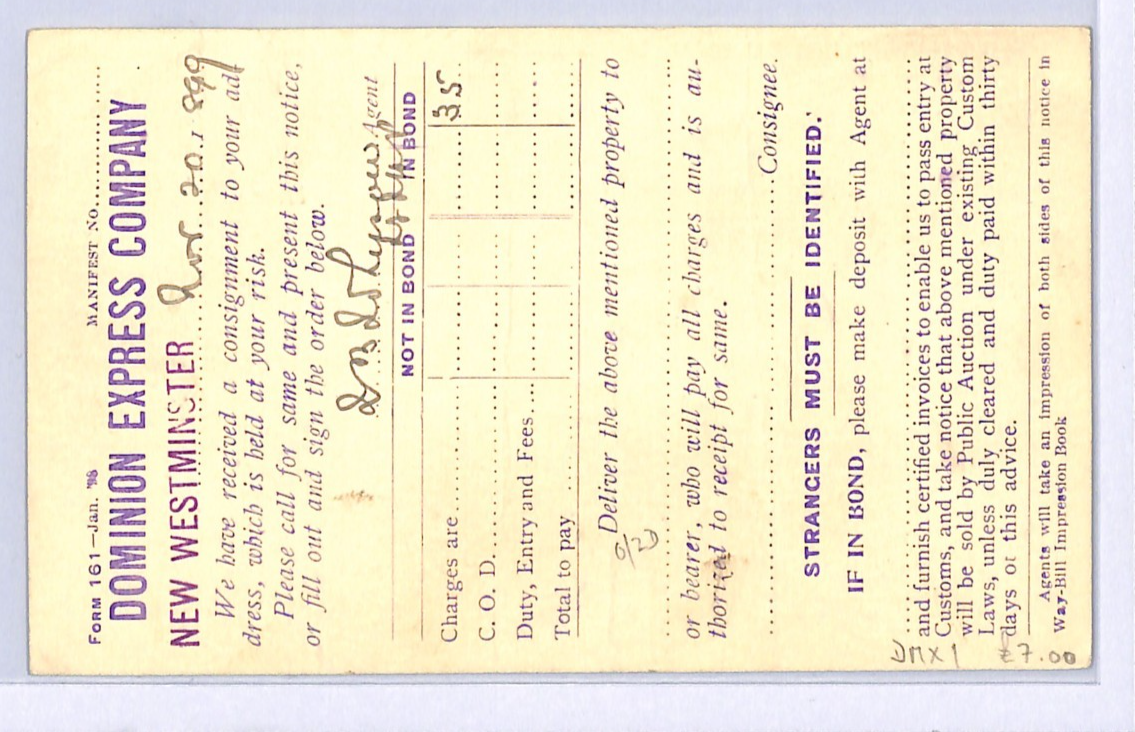 FORM 161—Jan. '98 MANIFEST No..........
DOMINION EXPRESS COMPANY
NEW WESTMINSTER Nov 20. 1899
We have received a consignment to your ad-
dress, which is held at your risk.
Please call for same and present this notice,
or fill out and sign the order below.
Agent
NOT IN BOND IN BOND
Charges are 35
C. O. D.
Duty, Entry and Fees
Total to pay
Deliver the above mentioned property to
or bearer, who will pay all charges and is au-
thorized to receipt for same.
Consignee.
STRANGERS MUST BE IDENTIFIED.
IF IN BOND, please make deposit with Agent at
and furnish certified invoices to enable us to pass entry at
Customs, and take notice that above mentioned property
will be sold by Public Auction under existing Custom
Laws, unless duly cleared and duty paid within thirty
days of this advice.
Agents will take an impression of both sides of this notice in
Way-Bill Impression Book
DMX1 £7.00